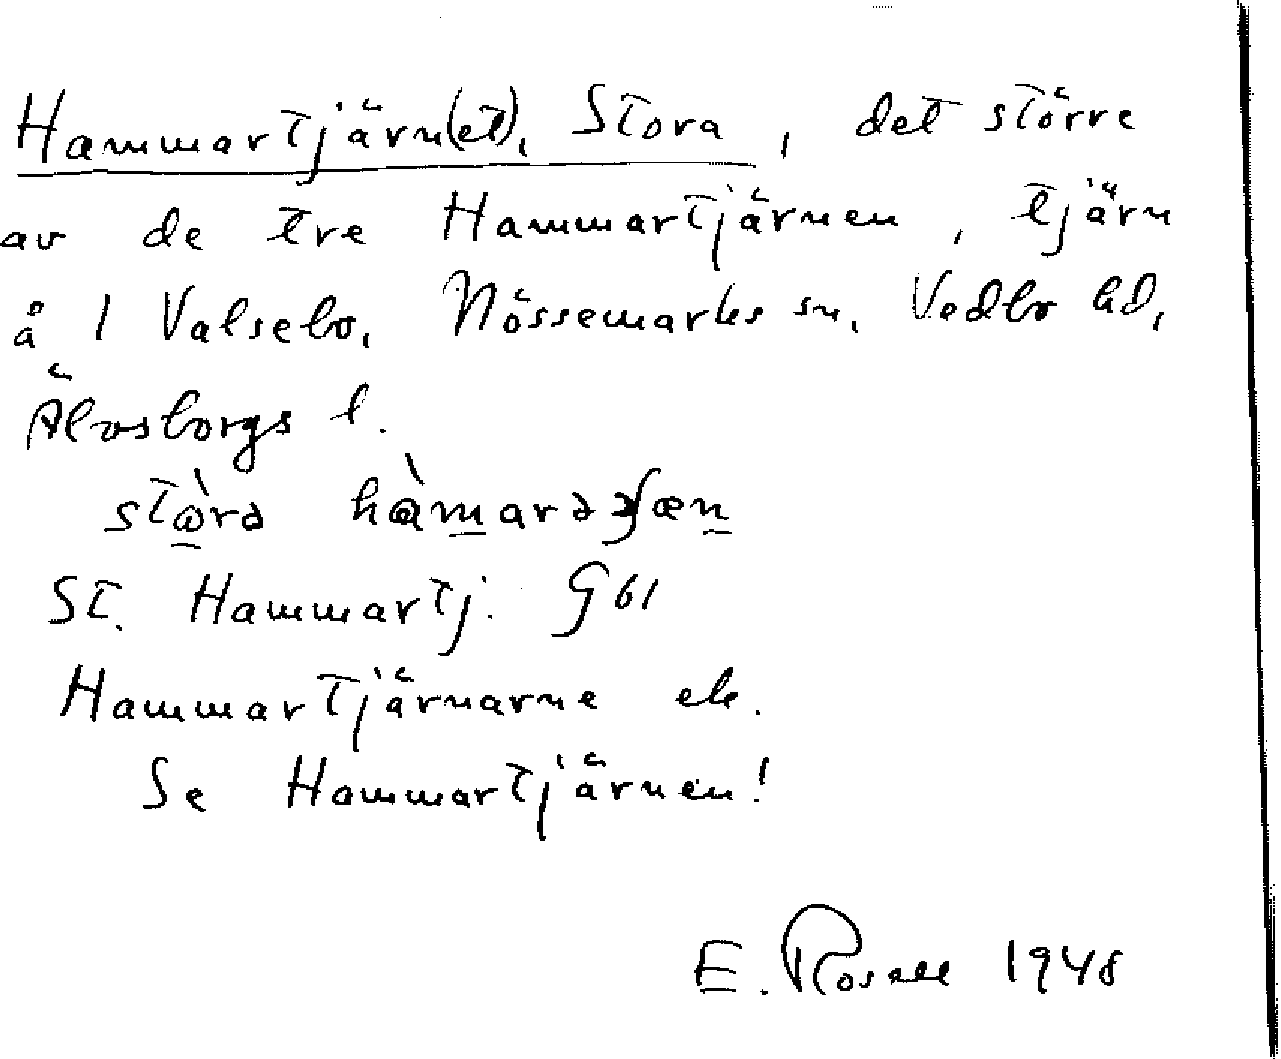 Hammartjärn(et), Stora, det större
av de tre Hammartjärnen, tjärn
å 1 Valsebo, Nössemarks sn, Vedbo hd,
Älvsborgs l.
St. Hammartj. G61
Hammartjärnarne ek.
Se Hammartjärnen!
E. Rosell 1948